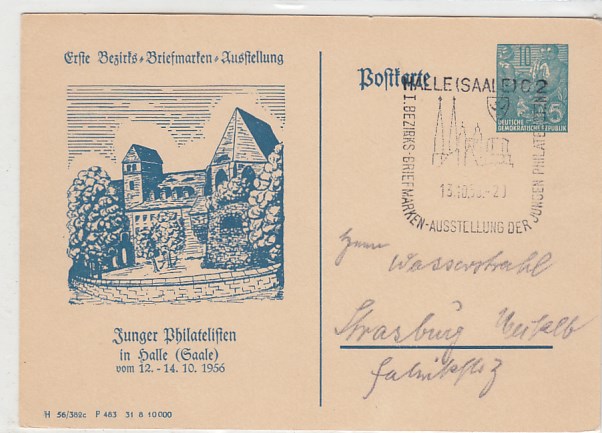 Erste Bezirks-Briefmarken-Ausstellung
Junger Philatelisten
in Halle (Saale)
vom 12. - 14. 10. 1956
H 56/382c P 483 31 8 10 000
Postkarte
10
5
DEUTSCHE
DEMOKRATISCHE REPUBLIK
HALLE (SAALE) C 2
I. BEZIRKS-BRIEFMARKEN-AUSSTELLUNG DER JUNGEN PHILATELISTEN
13.10.56.-20
Herrn
Wasserstrahl
Strasburg